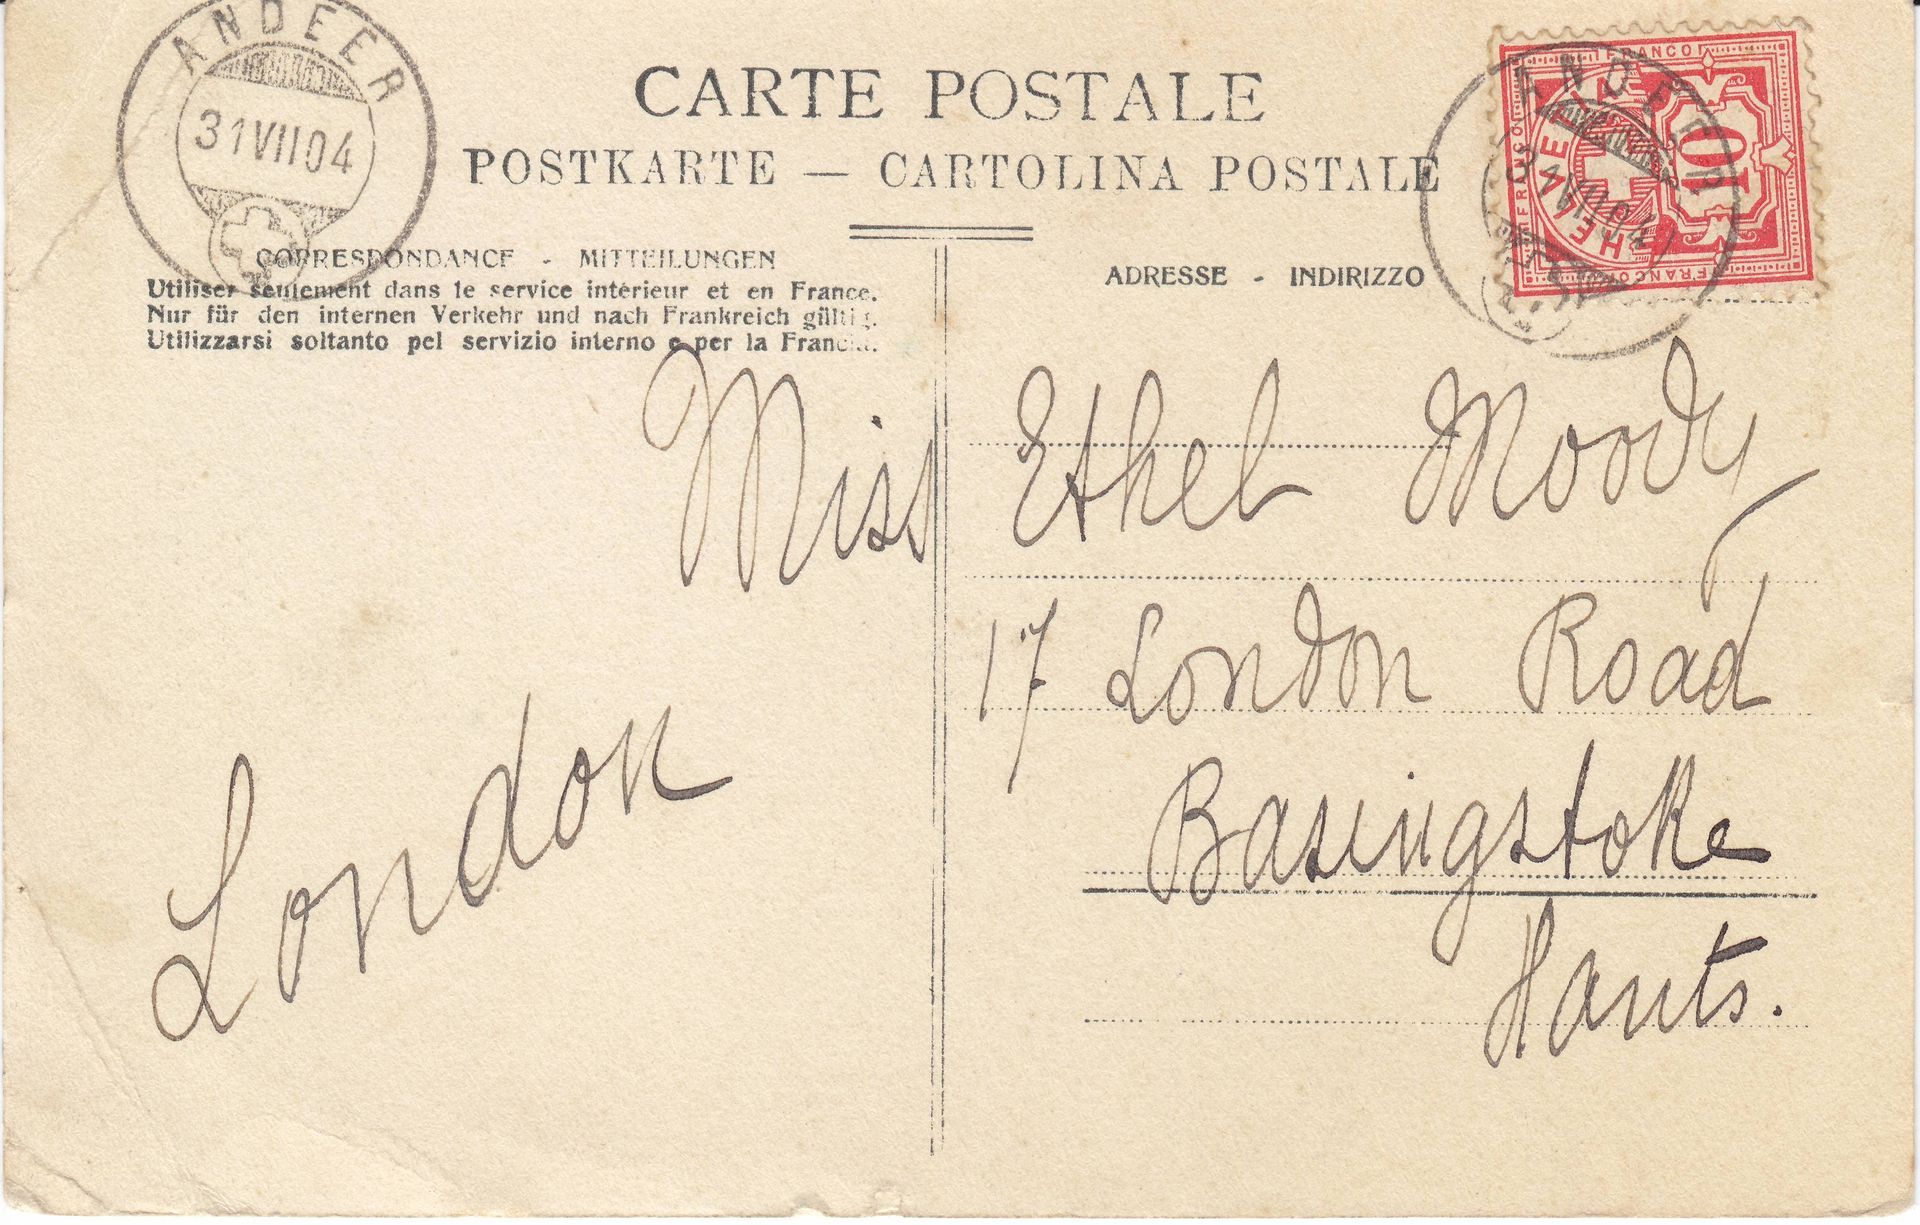 ANDEER
31 VII 04
CARTE POSTALE
POSTKARTE — CARTOLINA POSTALE
CORRESPONDANCE - MITTEILUNGEN
Utiliser seulement dans le service intérieur et en France.
Nur für den internen Verkehr und nach Frankreich gültig.
Utilizzarsi soltanto pel servizio interno e per la Francia.
ADRESSE - INDIRIZZO
FRANCO
FRANCO
FRANCO
HELVETIA
10
ANDEER
31 VII 04
Miss Ethel Moody
17 London Road
Basingstoke
Hants.
London